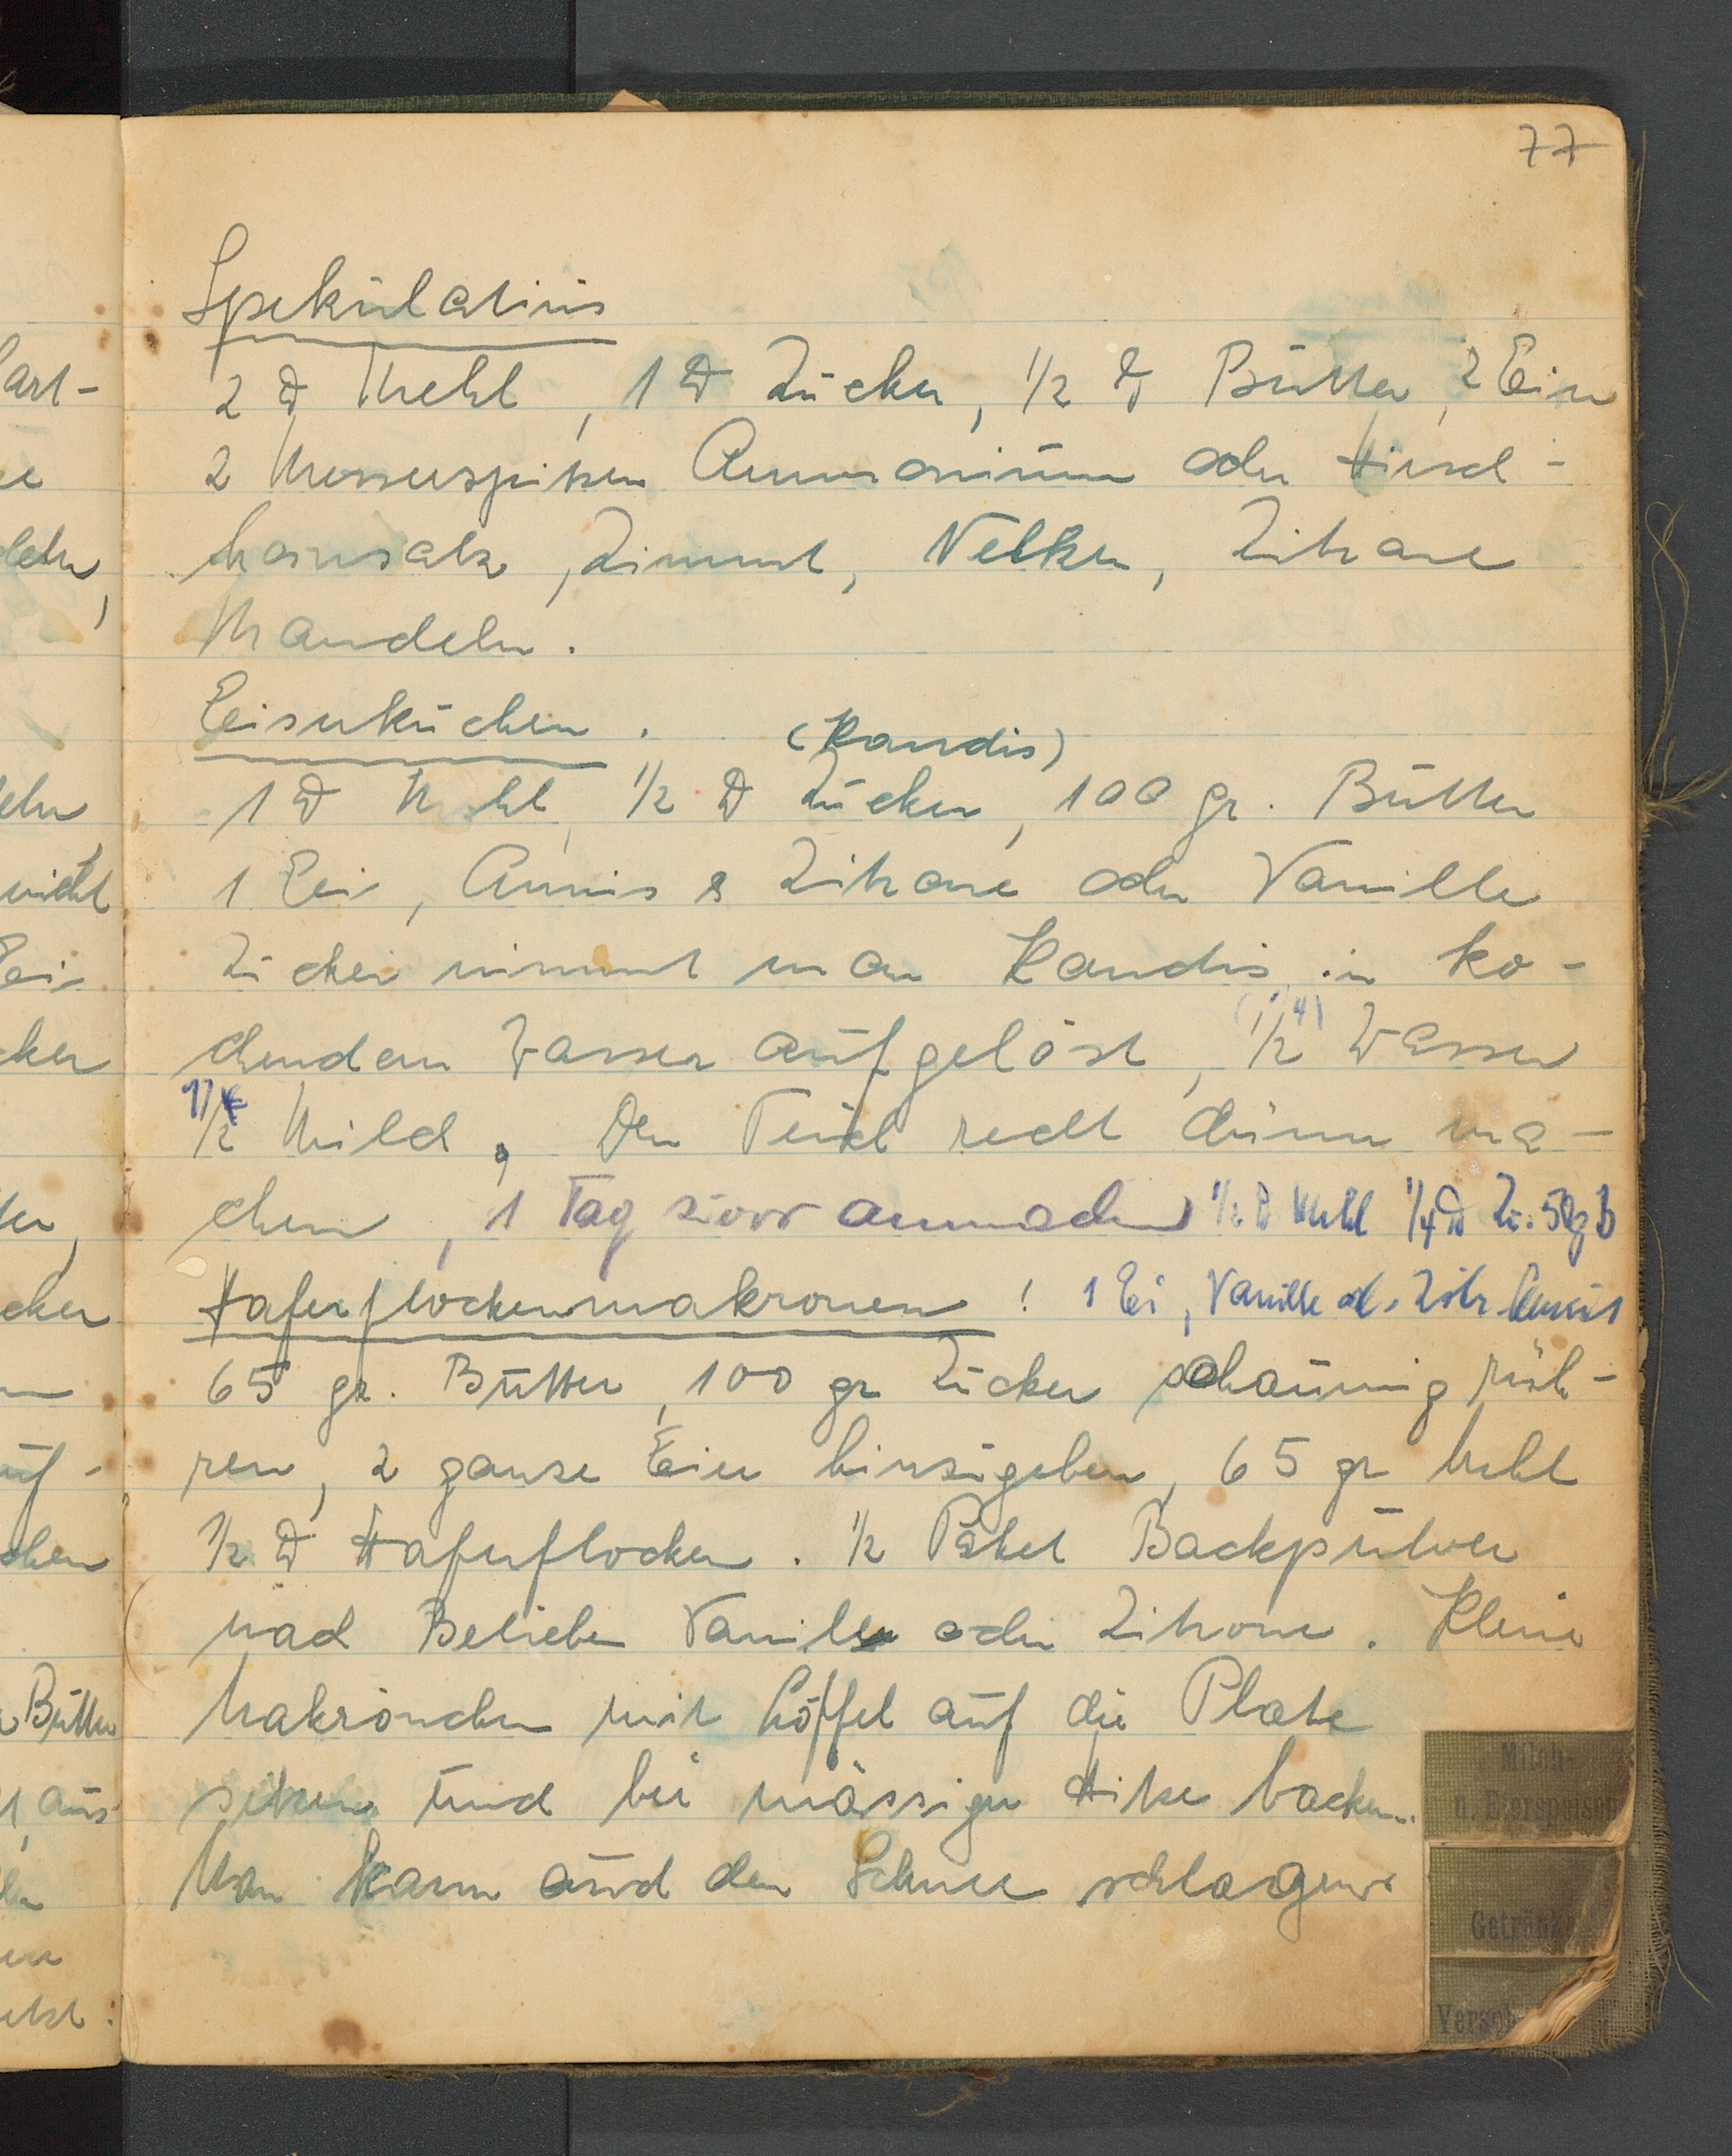 77
Spekulatius
2 ℔ Mehl, 1 ℔ Zucker, 1/2 ℔ Butter, 2 Eier
2 Messerspitzen Ammonium oder Hirsch-
hornsalz, Zimmt, Nelken, Zitrone
Mandeln.
Eiserkuchen.
(Kandis)
1 ℔ Mehl, 1/2 ℔ Zucker, 100 gr. Butter
1 Ei, Annis & Zitrone oder Vanille
Zucker nimmt man Kandis in ko-
chendem Wasser aufgelöst, 1/2 (1/4) Wasser
1/2 Milch, Den Teich recht dünn ma-
chen, 1 Tag zuvor anmachen 1/2 ℔ Mehl 1/4 ℔ Zu. 50 g B
Haferflockenmakronen! 1 Ei, Vanille od. Zitr
65 gr. Butter, 100 gr Zucker schaumig rüh-
ren, 2 ganze Eier hinzugeben, 65 gr Mehl
1/2 ℔ Haferflocken. 1/2 Paket Backpulver
nach Belieben Vanille oder Zitrone. Kleine
Makrönchen mit Löffel auf die Platte
setzen und bei mässiger Hitze backen.
Man kann auch den Schnee schlagen
Milch-
u. Eierspeisen
Getränke
art-
nicht
Ei
cker
cker
auf-
chen
Butter
aus-